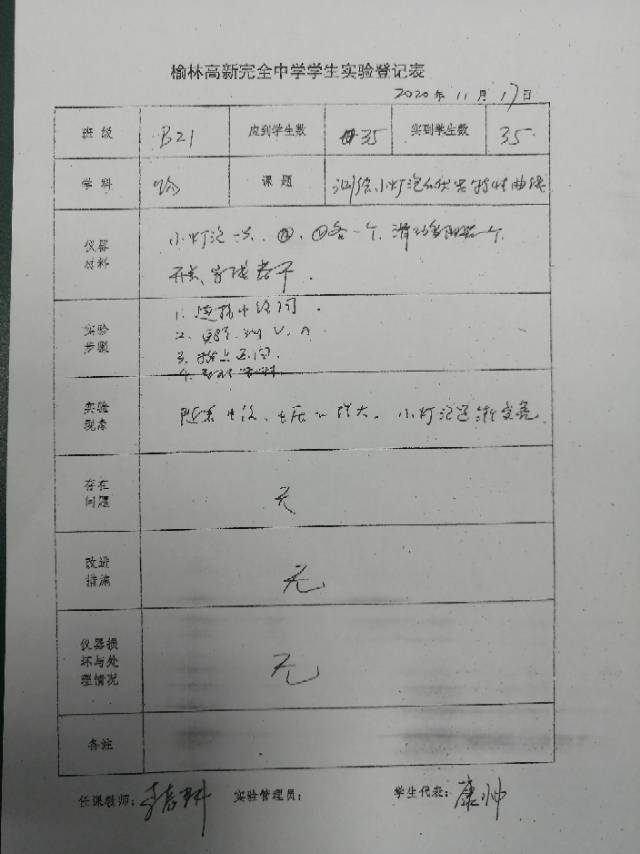 榆林高新完全中学学生实验登记表
2020年11月17日
班级 B21 应到学生数 35 实到学生数 35
学科 物 课题 测绘小灯泡的伏安特性曲线
仪器材料
小灯泡一只、Ⓐ、Ⓥ各一个、滑动变阻器一个
开关、导线若干.
实验步骤
1. 连接电路图.
2. 实验,测V、A
3. 描点画图.
实验现象
随着电流、电压的增大。小灯泡逐渐变亮
存在问题
无
改进措施
无
仪器损坏与处理情况
无
备注
任课教师: 实验管理员: 学生代表: 康帅